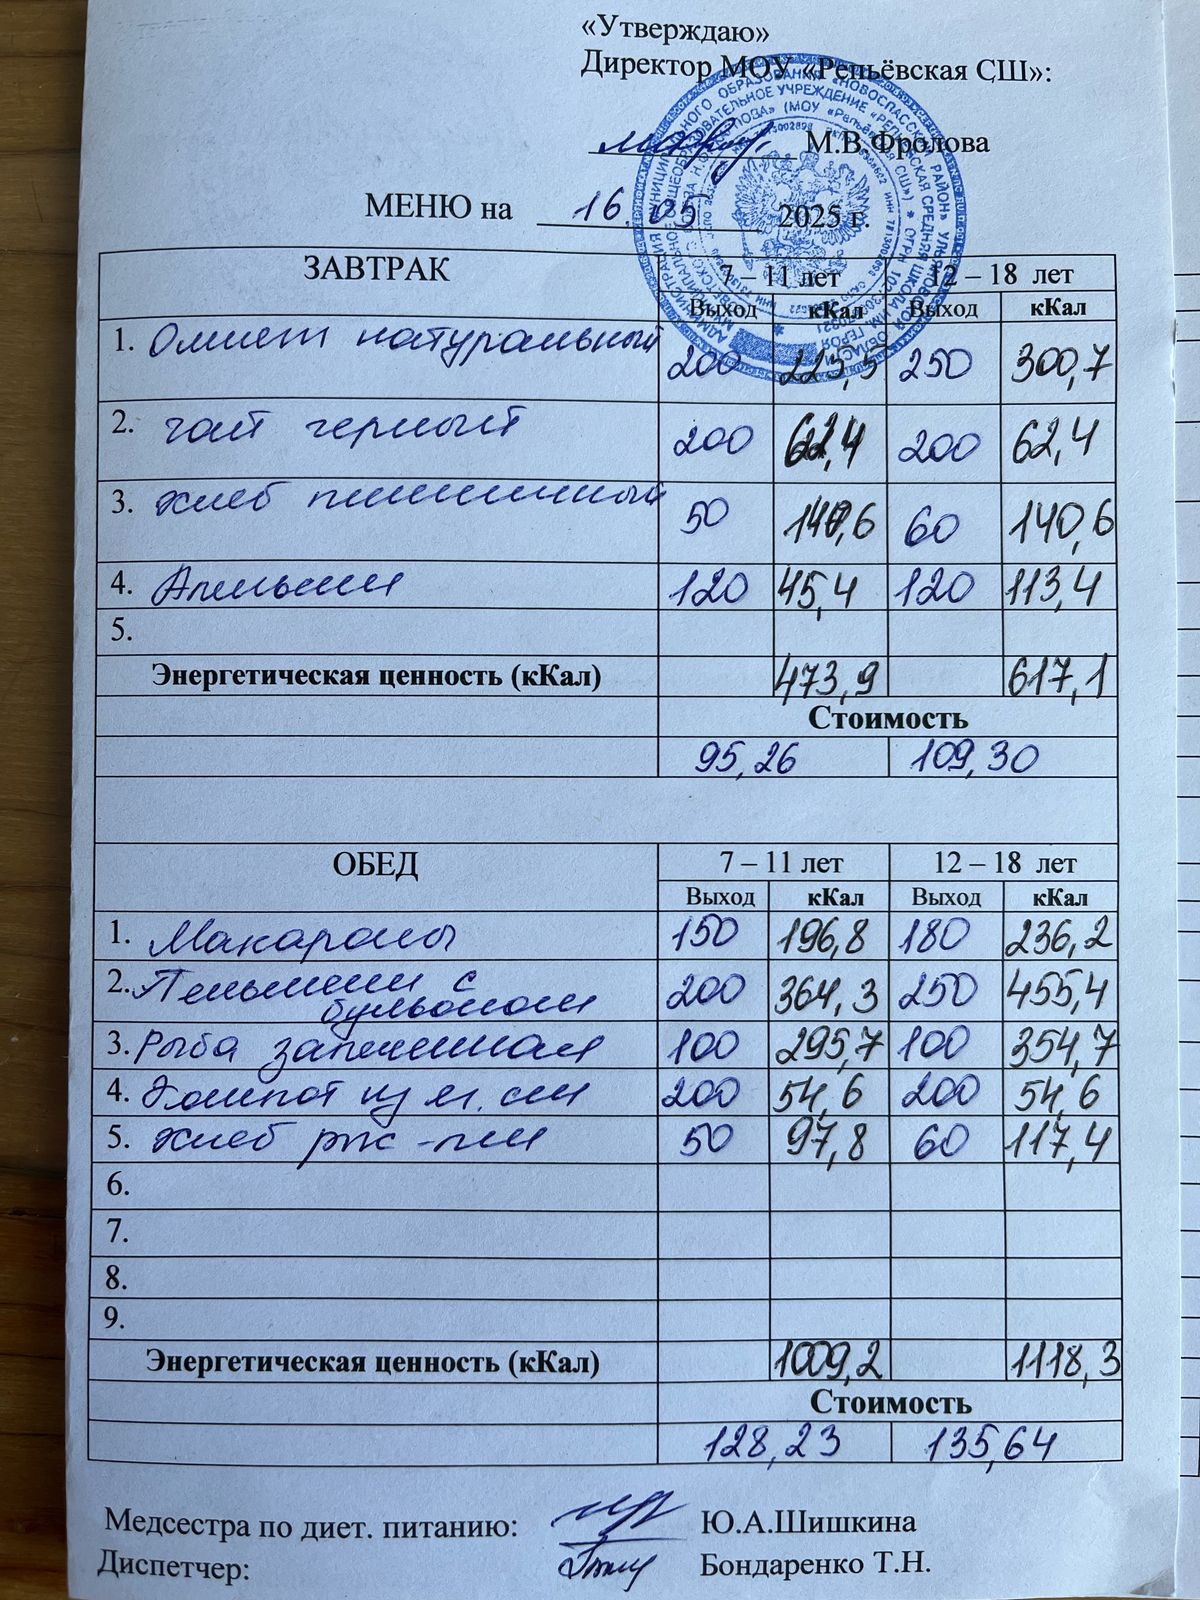 «Утверждаю»
Директор МОУ «Репьёвская СШ»:
М.В.Фролова
МЕНЮ на 16.05 2025 г.
ЗАВТРАК 7 – 11 лет 12 – 18 лет
Выход кКал Выход кКал
1. Омлет натуральный 200 225,5 250 300,7
2. чай черный 200 62,4 200 62,4
3. хлеб пшеничный 50 140,6 60 140,6
4. Апельсин 120 45,4 120 113,4
5.
Энергетическая ценность (кКал) 473,9 617,1
Стоимость
95,26 109,30
ОБЕД 7 – 11 лет 12 – 18 лет
Выход кКал Выход кКал
1. Макароны 150 196,8 180 236,2
2. Пельмени с бульоном 200 364,3 250 455,4
3. Рыба запеченная 100 295,7 100 354,7
4. Компот из м. см 200 54,6 200 54,6
5. хлеб рж-пш 50 97,8 60 117,4
6.
7.
8.
9.
Энергетическая ценность (кКал) 1009,2 1118,3
Стоимость
128,23 135,64
Медсестра по диет. питанию: Ю.А.Шишкина
Диспетчер: Бондаренко Т.Н.